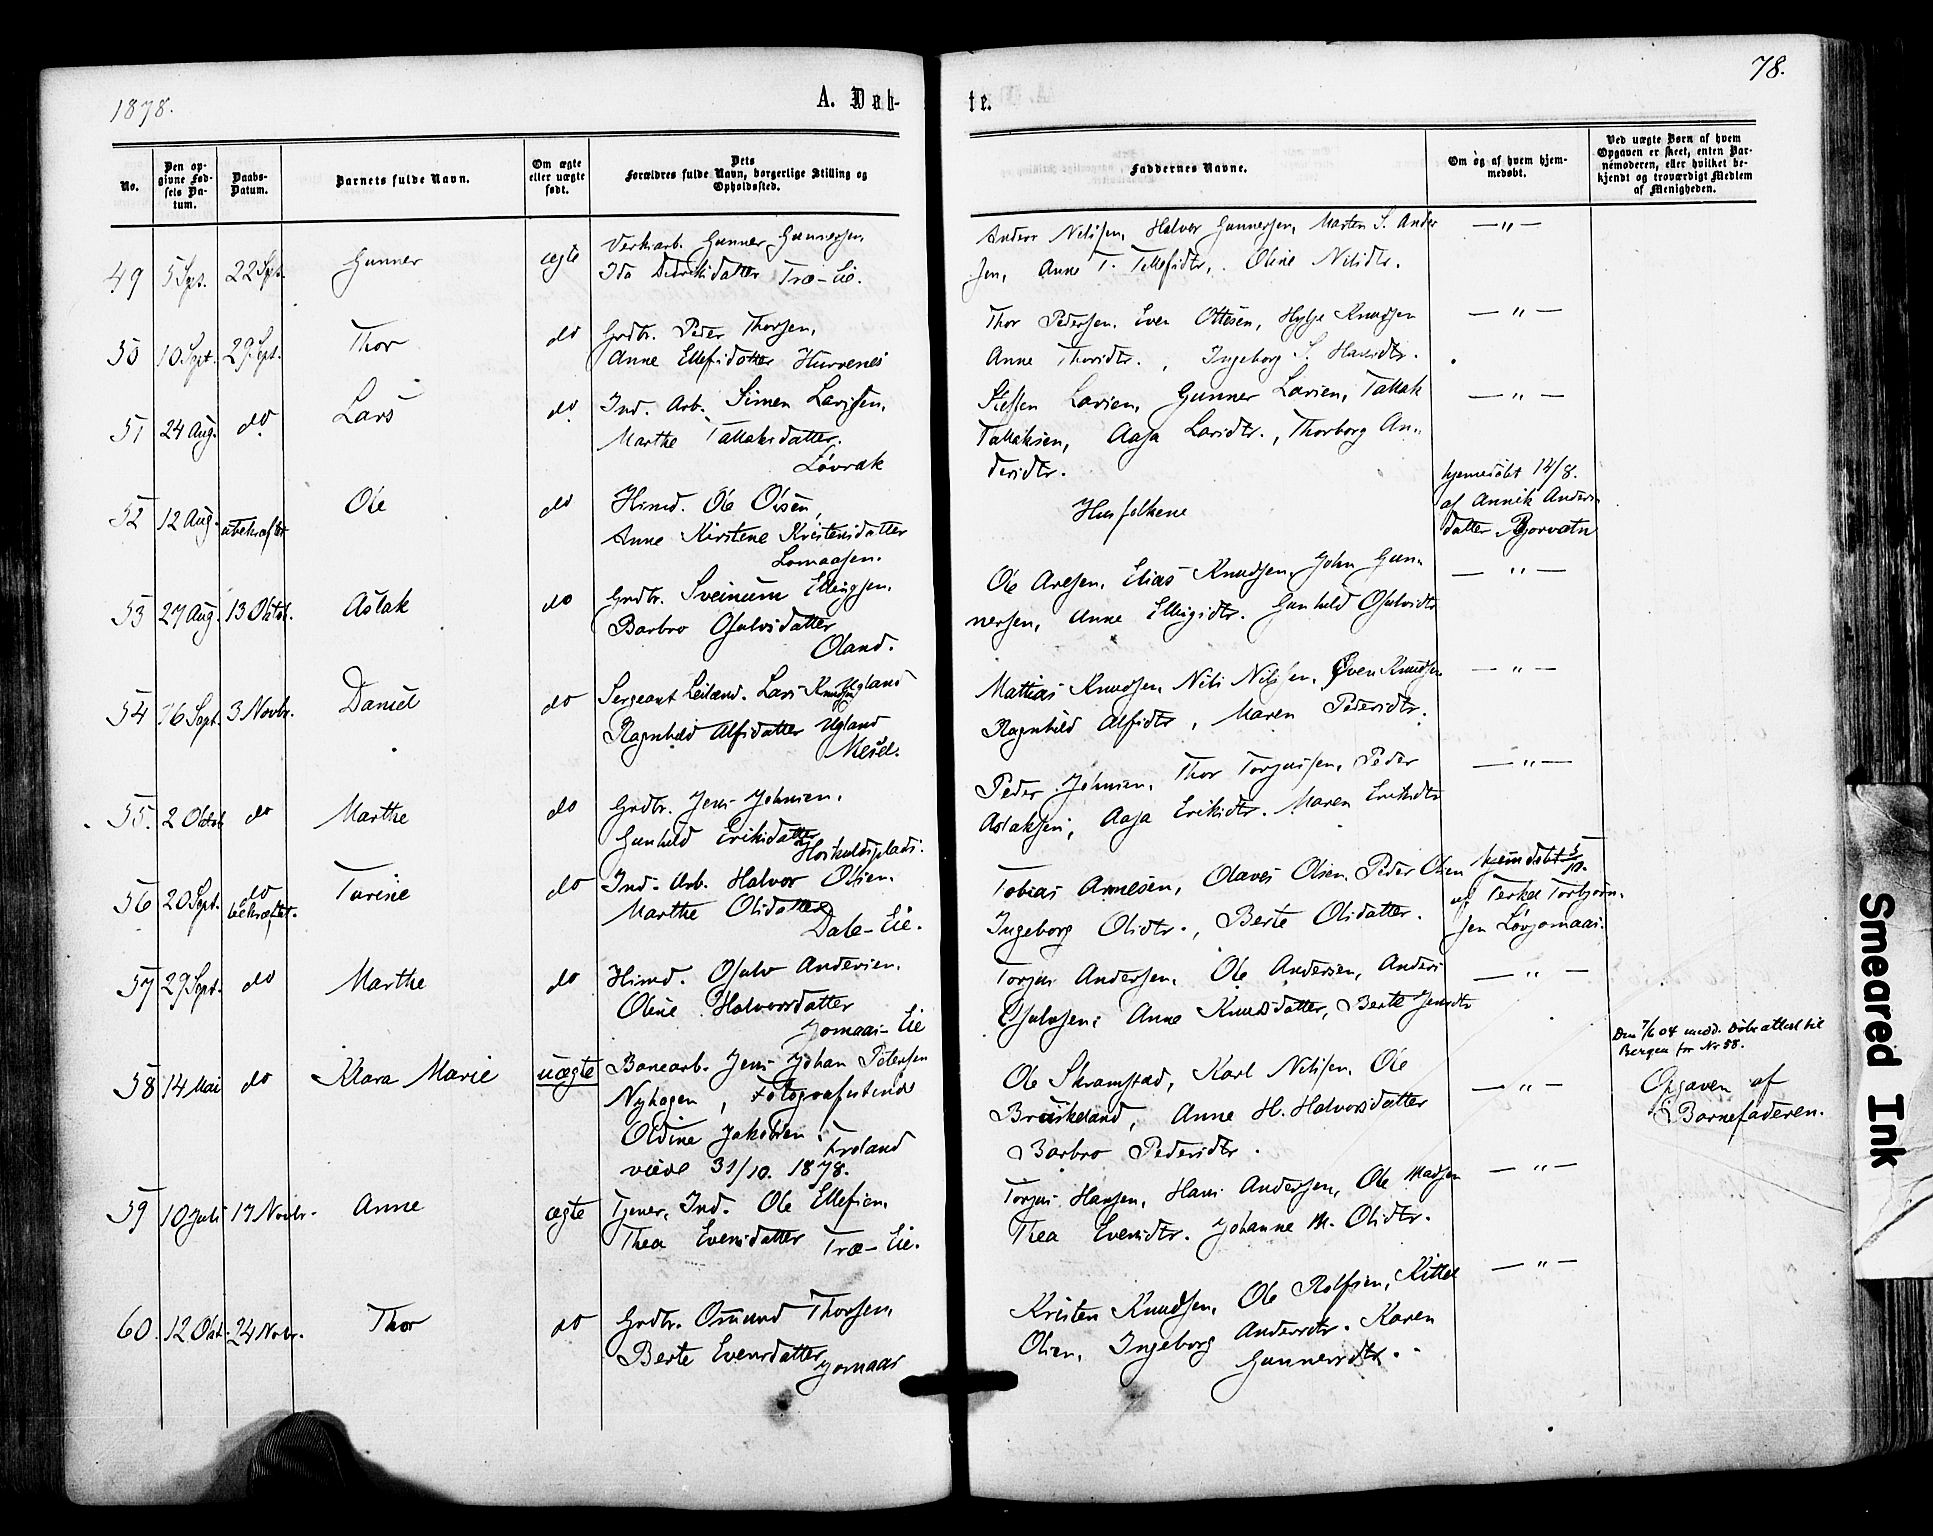 1878.
A. Døb-
te.
78.
No.
Den op-
givne Fød-
sels Da-
tum.
Daabs-
Datum.
Barnets fulde Navn.
Om ægte
eller uægte
født.
Dets
Forældres fulde Navn, borgerlige Stilling og
Opholdssted.
Faddernes Navne.
Om og af hvem hjem-
medøbt.
Ved uægte Børn af hvem
Opgaven er skeet, enten Bar-
nemoderen, eller hvilket be-
kjendt og troværdigt Medlem
af Menigheden.
49 5 Sept. 22 Sept. Gunner ægte
Verksarb. Gunner Gunnersen,
Ida Didriksdatter Træ-Eie.
Anders Nilssen, Halvor Gunnersen, Morten S. Ander
sen, Anne T. Tellefsdtr., Oline Nilsdtr.
— " —
50 10 Sept. 29 Sept. Thor do
Grdbr. Peder Thorsen,
Anne Ellefsdatter Hurvenes
Thor Pedersen, Even Ottesen, Knudsen
Anne Thorsdtr., Ingeborg S. Hansdtr.
— " —
51 24 Aug. do Lars do
Ind. Arb. Simen Larssen,
Marthe Tallaksdatter.
Løvrak
Steffen Larsen, Gunner Larsen, Tallak
Tallaksen, Aasa Larsdtr., Thorborg An-
dersdtr.
— " —
52 12 Aug. ubekræftet Ole do
Hsmd. Ole Olsen,
Anne Kirstene Kristensdatter
Lomaasen.
Husfolkene
hjemmedøbt 14/8.
af Annik Anders-
datter Bjorvatn
53 27 Aug. 13 Oktob. Aslak do
Grdbr. Sveinum Ellingsen,
Barbro Osulvsdatter
Oland.
Ole Aresen, Elias Knudsen, John Gun-
nersen, Anne Ellingsdtr. Gunhild Osulvsdtr
— " —
54 16 Sept. 3 Novbr. Daniel do
Sergeant Leilænd. Lars Knudsen Ugland
Ragnhild Alfsdatter Ugland
Mesel.
Mattias Knudsen, Nils Nilssen, Even Knudsen
Ragnhild Alfsdtr, Maren Pedersdtr.
— " —
55. 2 Oktob do Marthe do
Grdbr. Jens Johnsen,
Gunhild Eriksdatter
Hoskuldsplads.
Peder Johnsen, Thor Torjussen, Peder
Aslaksen, Aasa Eriksdtr. Maren Eriksdtr
— " —
56 20 Sept. do
bekræftet. Turine do
Ind. Arb. Halvor Olsen.
Marthe Olsdatter
Dale-Eie.
Tobias Arnesen, Olaves Olsen, Peder Olsen
Ingeborg Olsdtr., Berte Olsdatter.
hjemdøbt 5/10.
af Terkel Torbjørn-
sen Løvjomaas.
57 29 Sept. do Marthe do
Hsmd. Osulv Andersen.
Oline Halvorsdatter
Jomaas-Eie
Torjus Andersen, Ole Andersen, Anders
Osulvsen, Anne Knudsdatter, Berte Jensdtr
— " —
58 14 Mai do Klara Marie uægte
Banearb. Jens Johan Petersen
Nyhagen, Fotograferinde
Oldine Jakobsen
Froland
viede 31/10. 1878.
Ole Skramstad, Karl Nilssen, Ole
Bruskeland, Anne H. Halvorsdatter
Barbro Pedersdtr.
— " —
Den 7/6 04 medd. Døbeattest til
Bergen for No 58.
Opgaven af
Barnefaderen.
59 10 Juli 17 Novbr. Anne ægte
Tjener, Ind. Ole Ellefsen,
Thea Evensdatter Træ-Eie.
Torjus Hansen, Hans Andersen, Ole Madsen
Thea Evensdtr. Johanne M. Olsdtr.
— " —
60. 12 Okt. 24 Novbr. Thor do
Grdbr. Osmund Thorsen,
Berte Evensdatter Jomaas
Kristen Knudsen, Ole Rolfsen, Kittel
Olsen, Ingeborg Andersdtr. Karen
Gunnersdtr.
— " —
Smeared Ink